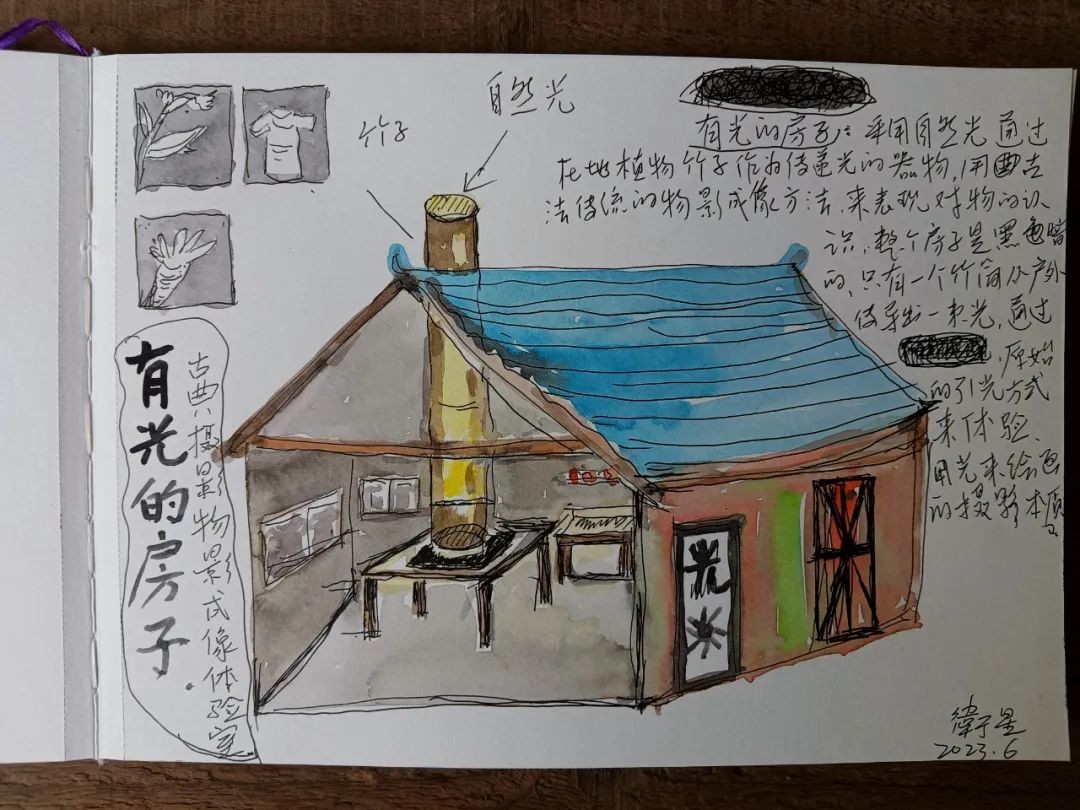 自然光
竹子
有光的房子：采用自然光通过
在地植物竹子作为传递光的器物，用古
法传统的物影成像方法，来表现对物的认
识，整个房子是黑色暗
的，只有一个竹筒从户外
传导出一束光，通过
原始
的引光方式
来体验、
用光来绘画
的摄影本质
有光的房子.
古典摄影物影成像体验室
光
衛星
2023.6